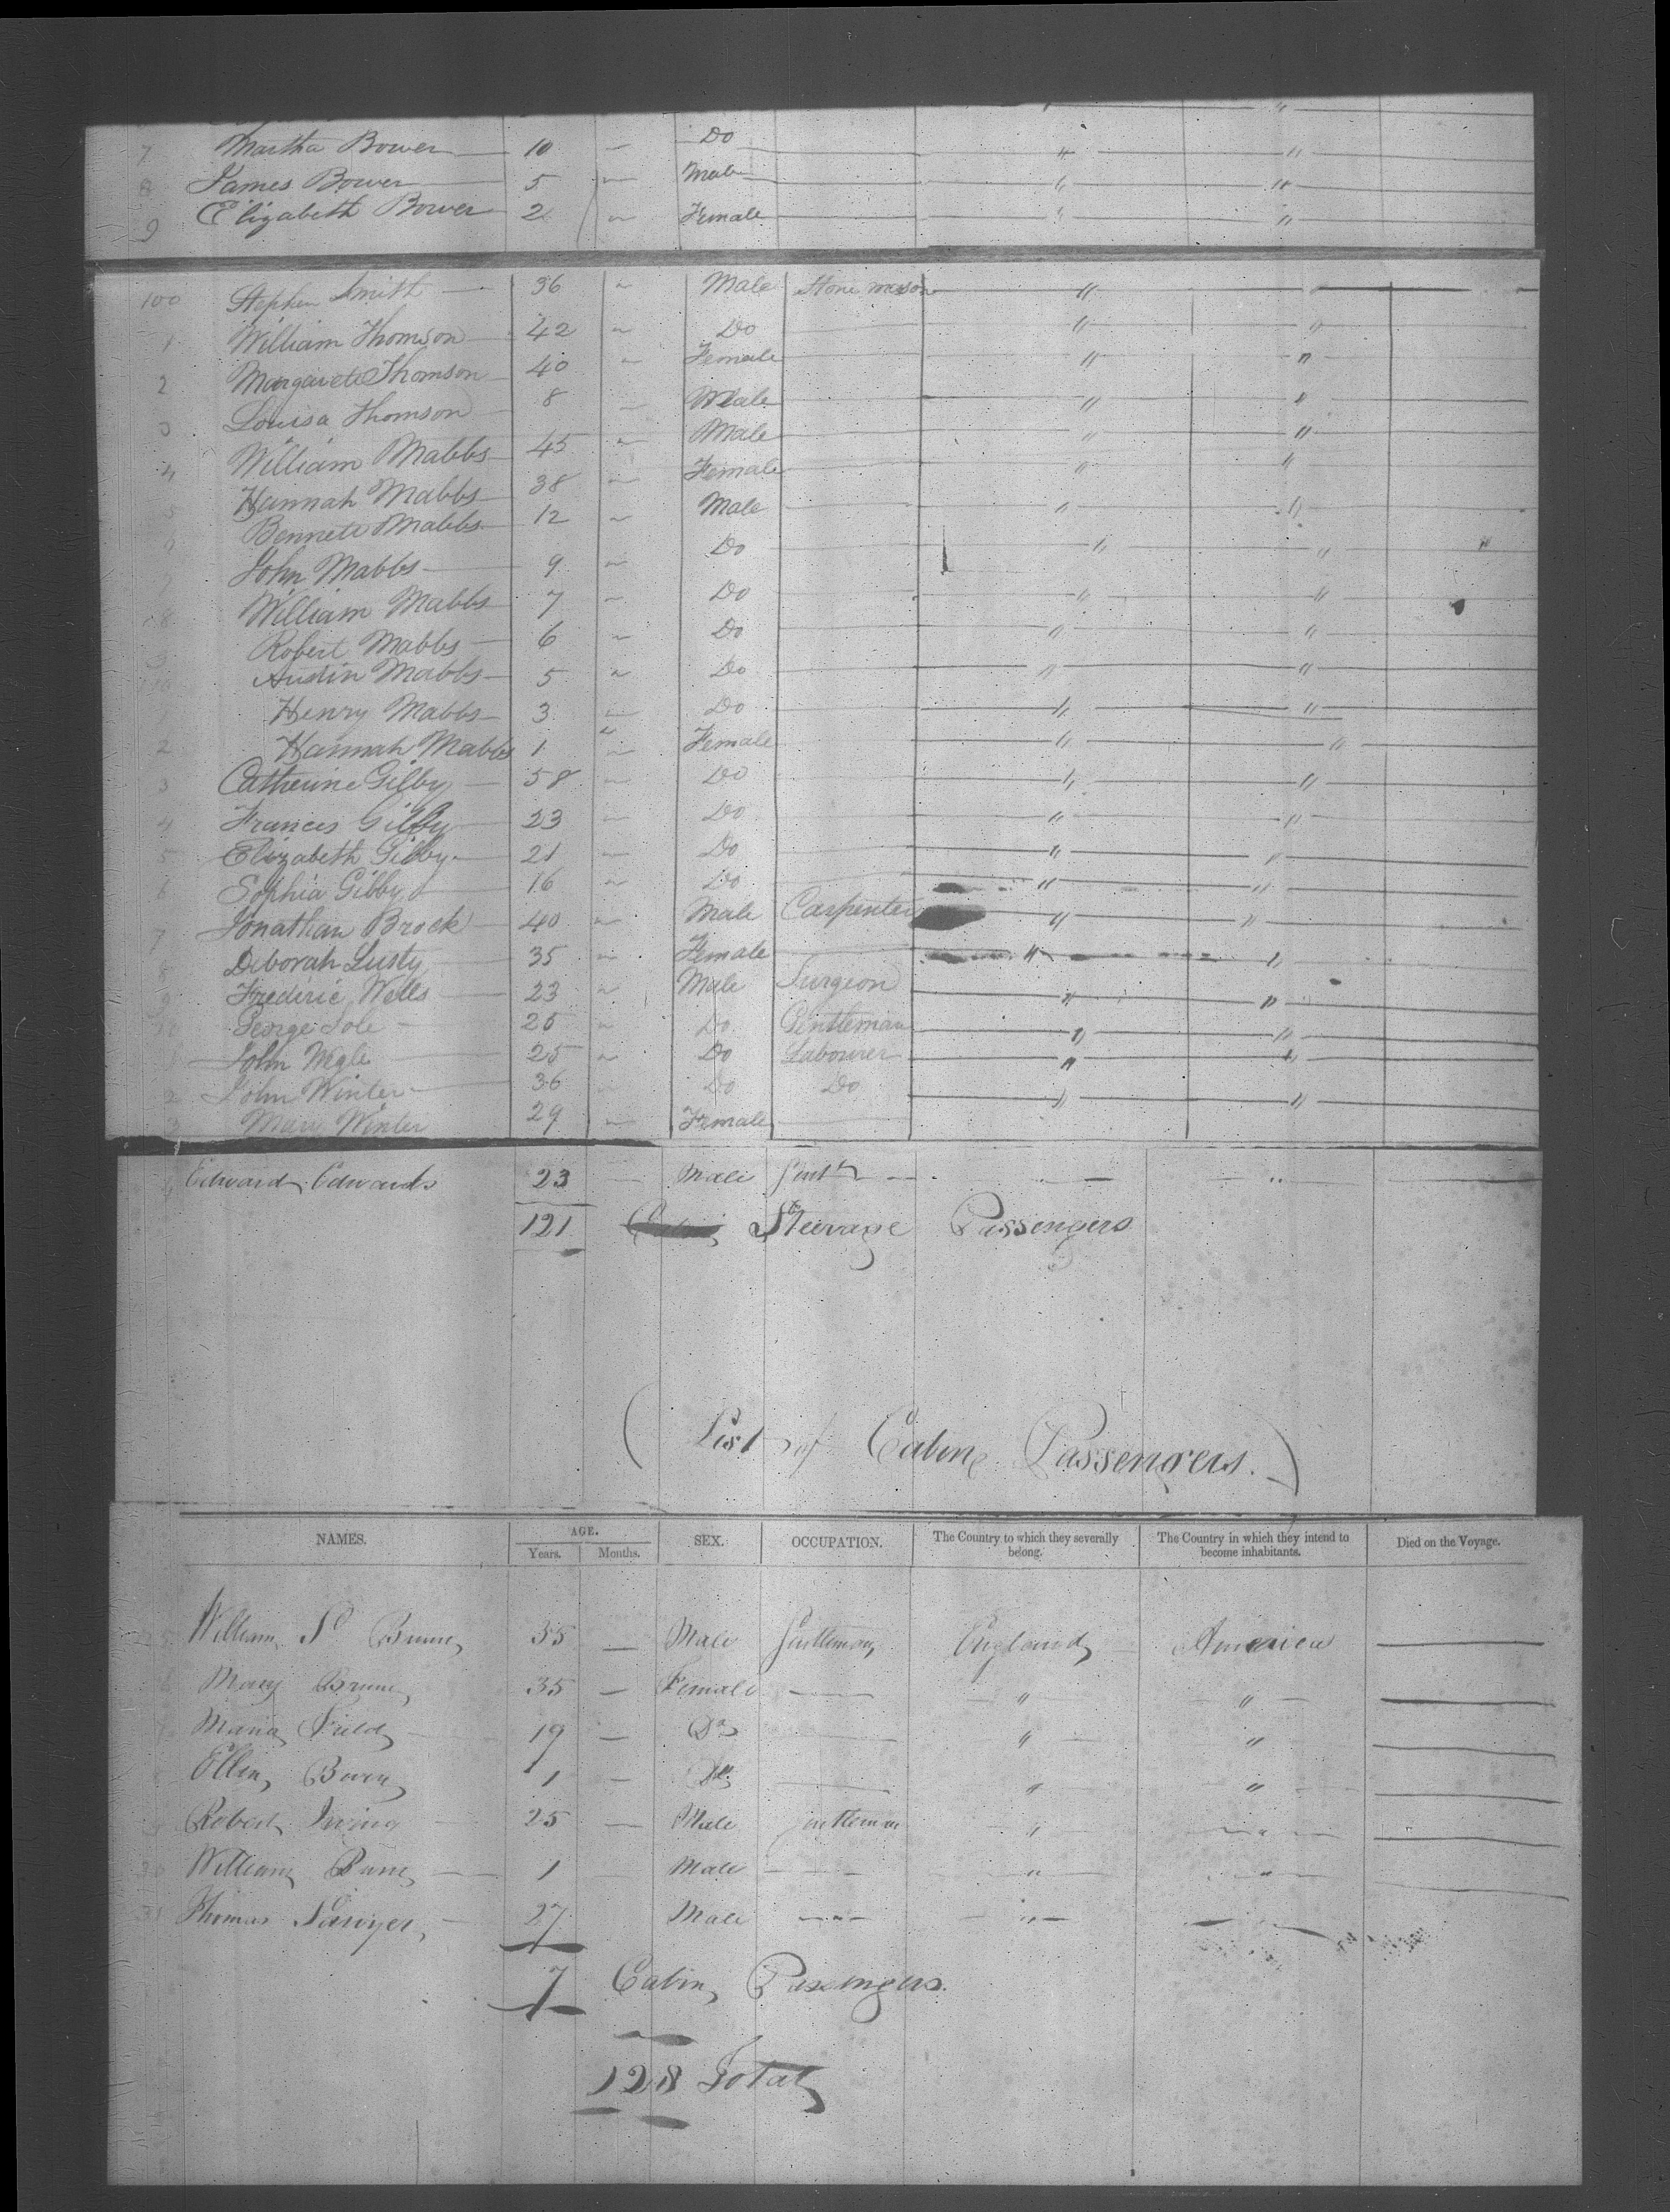 7 Martha Bower 10 — Do " "
8 James Bower 5 — Male " "
9 Elizabeth Bower 2 — Female " "
100 Stephen Smith 36 Male Stone mason "
1 William Thomson 42 Do " "
2 Margarete Thomson 40 Female " "
3 Louisa Thomson 8 Male " "
4 William Mabbs 45 Male " "
5 Hannah Mabbs 38 Female " "
Bennett Mabbs 12 Male " "
7 John Mabbs 9 Do " " "
8 William Mabbs 7 Do " "
Robert Mabbs 6 Do " "
10 Austin Mabbs 5 Do " "
Henry Mabbs 3 Do " "
2 Hannah Mabbs 1 Female " "
3 Catherine Gilby 58 Do " "
4 Frances Gilby 23 Do " "
5 Elizabeth Gilby 21 Do " "
6 Sophia Gilby 16 Do " "
7 Jonathan Brock 40 Male Carpenter " "
Deborah Lusty 35 Female " "
9 Frederic Wells 23 Male Surgeon " "
George Sole Do Gentleman " "
1 John 25 Do Labourer " "
2 John Winter 36 Do Do " "
3 Mary Winter 29 Female
Edward Edwards 23 Male Gent
121 Steerage Passengers
(List of Cabin Passengers.)
NAMES. AGE. SEX. OCCUPATION. The Country to which they severally belong. The Country in which they intend to become inhabitants. Died on the Voyage.
Years. Months.
William 35 — Male Gentleman England America —
Mary 35 — Female — " " —
Maria Field 19 — Do — " " —
Ellen 1 — Do — " " —
Robert Irving 25 — Male Gentleman " " —
William 1 — Male — " " —
Thomas Sawyer 27 Male — "
7 Cabin Passengers.
128 Total